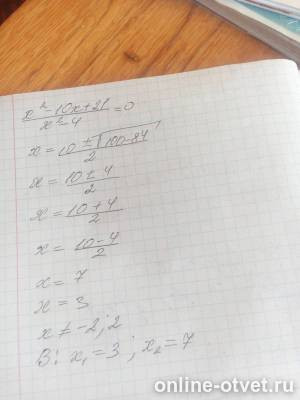 x² - 10x + 21 / x² - 4 = 0
x = 10 ± √100-84 / 2
x = 10 ± 4 / 2
x = 10 + 4 / 2
x = 10 - 4 / 2
x = 7
x = 3
x ≠ -2; 2
В: x₁ = 3 ; x₂ = 7
online-otvet.ru